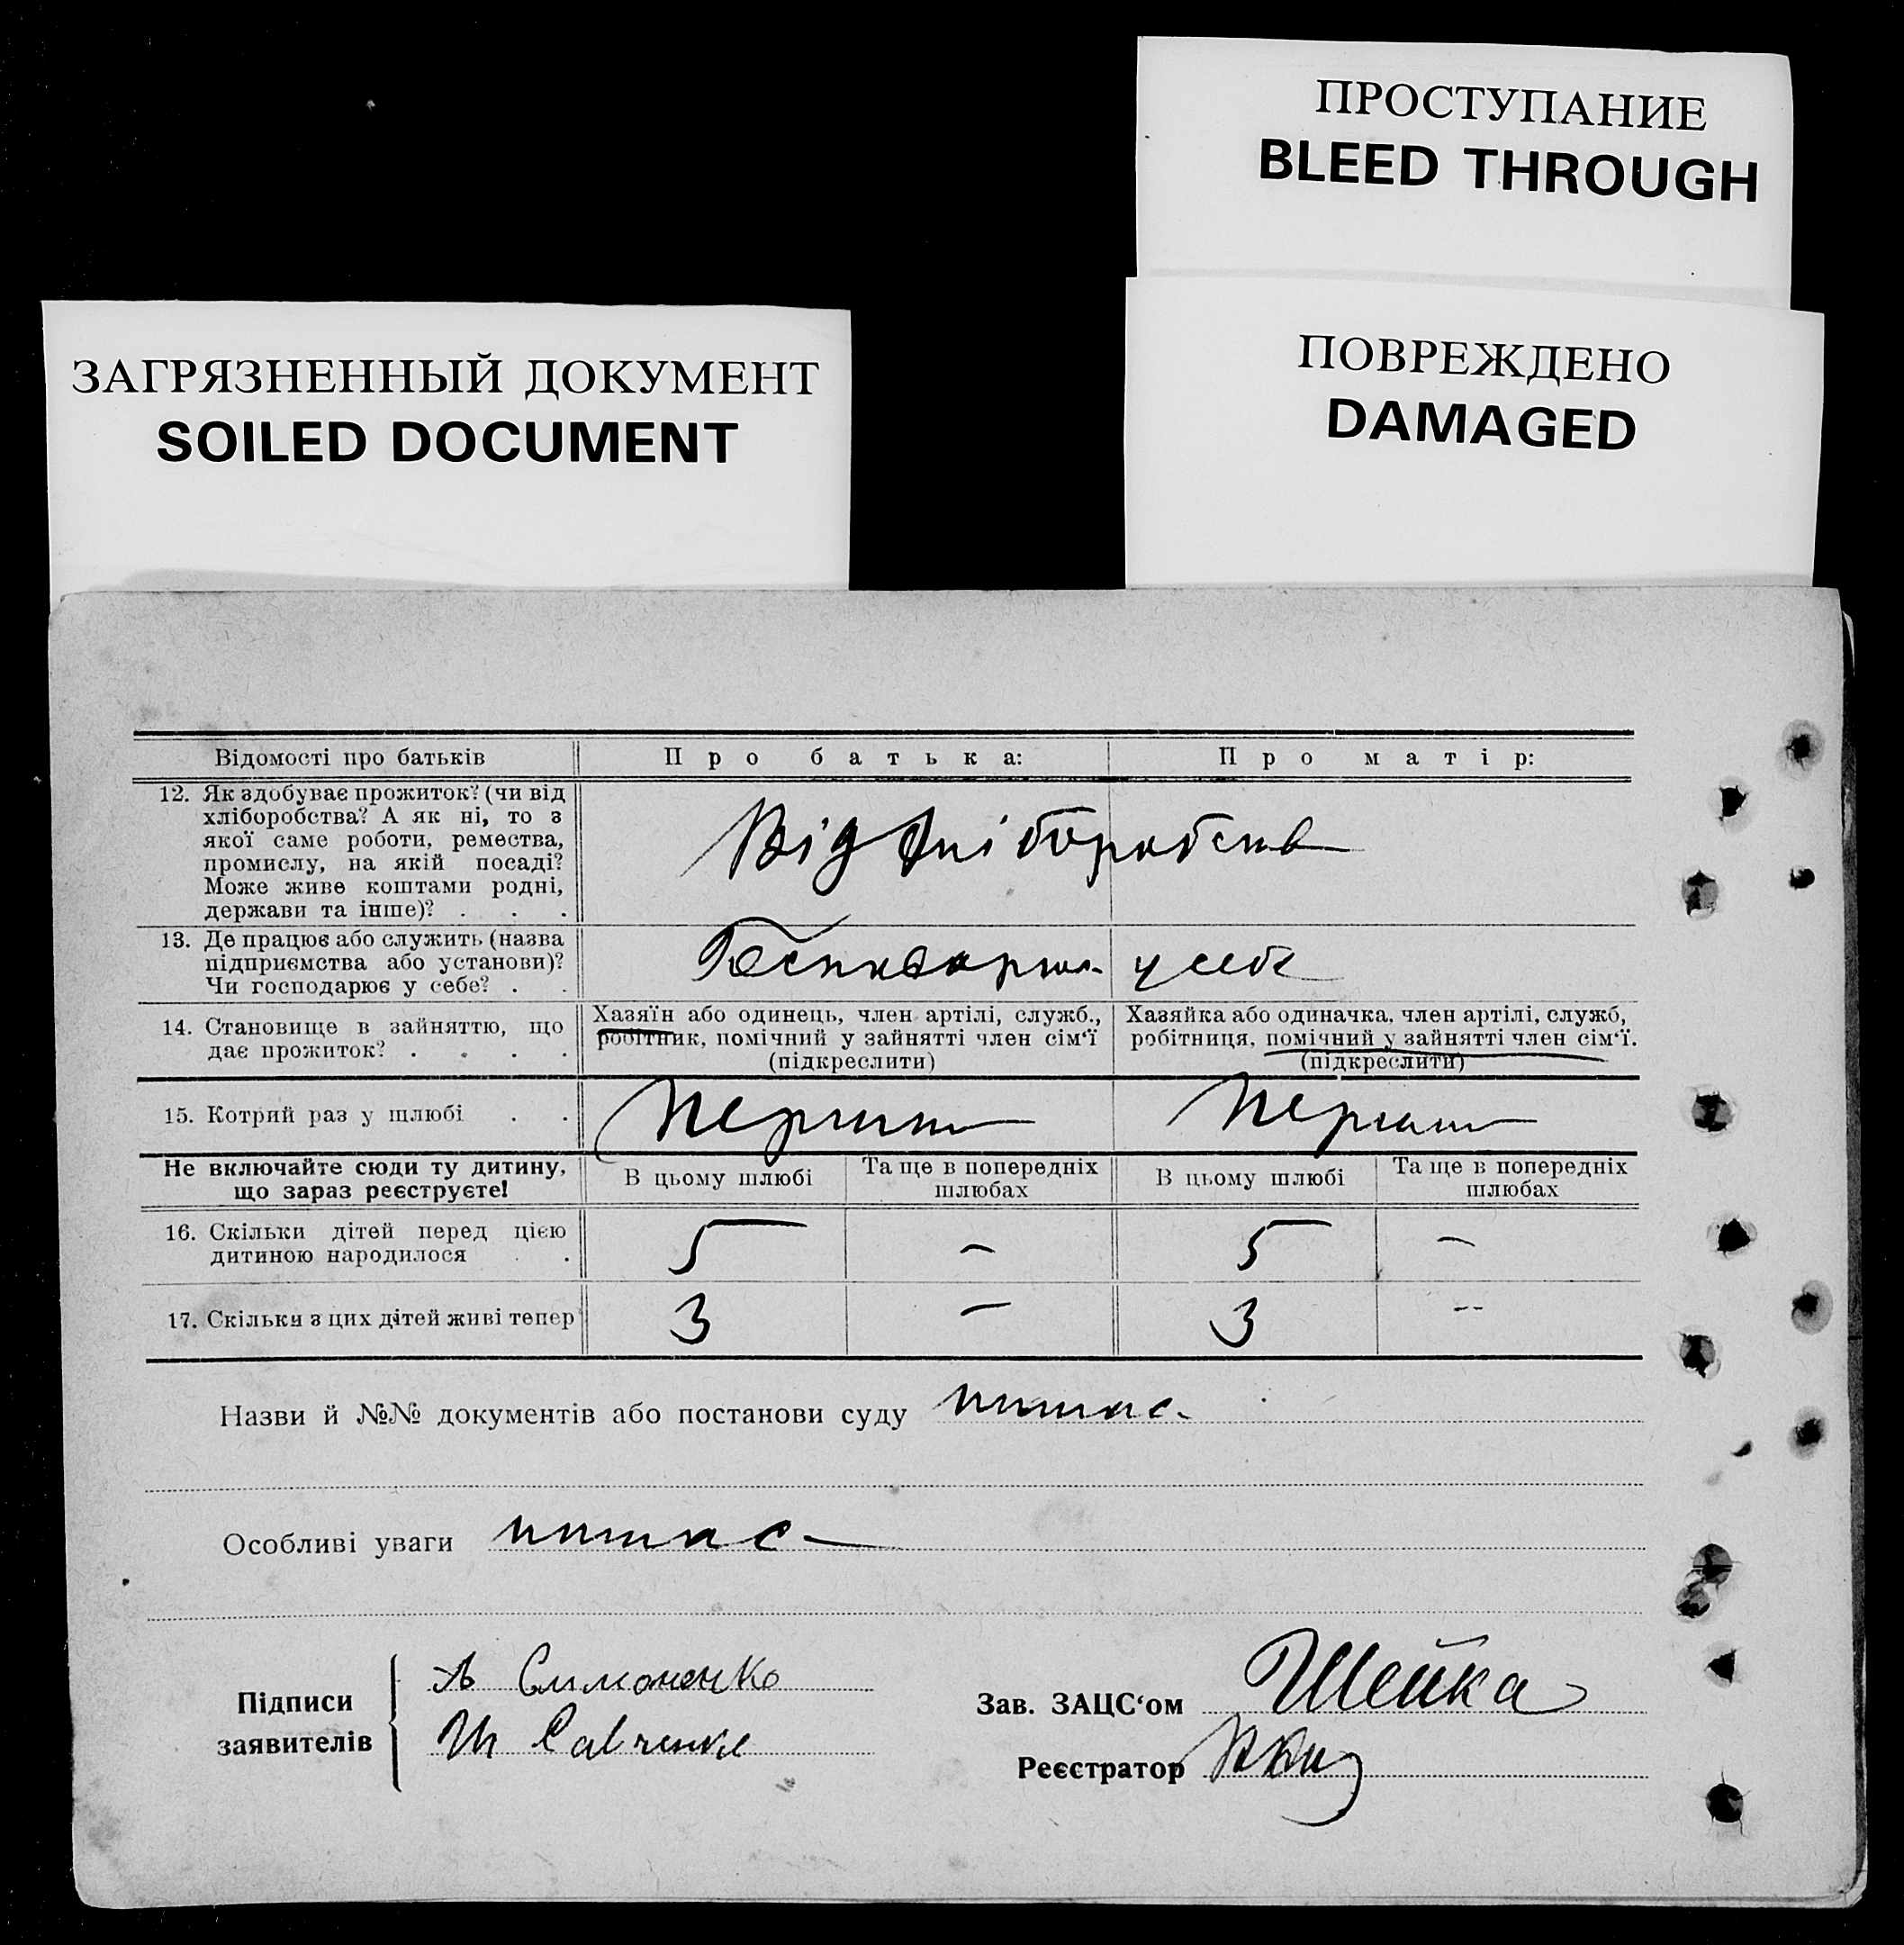 ПРОСТУПАНИЕ
BLEED THROUGH
ПОВРЕЖДЕНО
DAMAGED
ЗАГРЯЗНЕННЫЙ ДОКУМЕНТ
SOILED DOCUMENT
Відомості про батьків Про батька: Про матір:
12. Як здобуває прожиток? (чи від
хліборобства? А як ні, то з
якої саме роботи, ремества,
промислу, на якій посаді?
Може живе коштами родні,
держави та інше)? . . .
Від хліборобств
13. Де працює або служить (назва
підприємства або установи)?
Чи господарює у себе? . .
Господарює у себе
14. Становище в зайняттю, що
дає прожиток? . . . .
Хазяїн або одинець, член артілі, служб.,
робітник, помічний у зайнятті член сім'ї
(підкреслити)
Хазяйка або одиначка, член артілі, служб,
робітниця, помічний у зайнятті член сім'ї.
(підкреслити)
15. Котрий раз у шлюбі . . Перший Перший
Не включайте сюди ту дитину,
що зараз реєструєте!
В цьому шлюбі Та ще в попередніх
шлюбах
В цьому шлюбі Та ще в попередніх
шлюбах
16. Скільки дітей перед цією
дитиною народилося . .
5 — 5 —
17. Скільки з цих дітей живі тепер 3 — 3 --
Назви й №№ документів або постанови суду немає.
Особливі уваги немає
Підписи
заявителів
Симоненко
Савченко
Зав. ЗАЦС'ом Шейка
Реєстратор